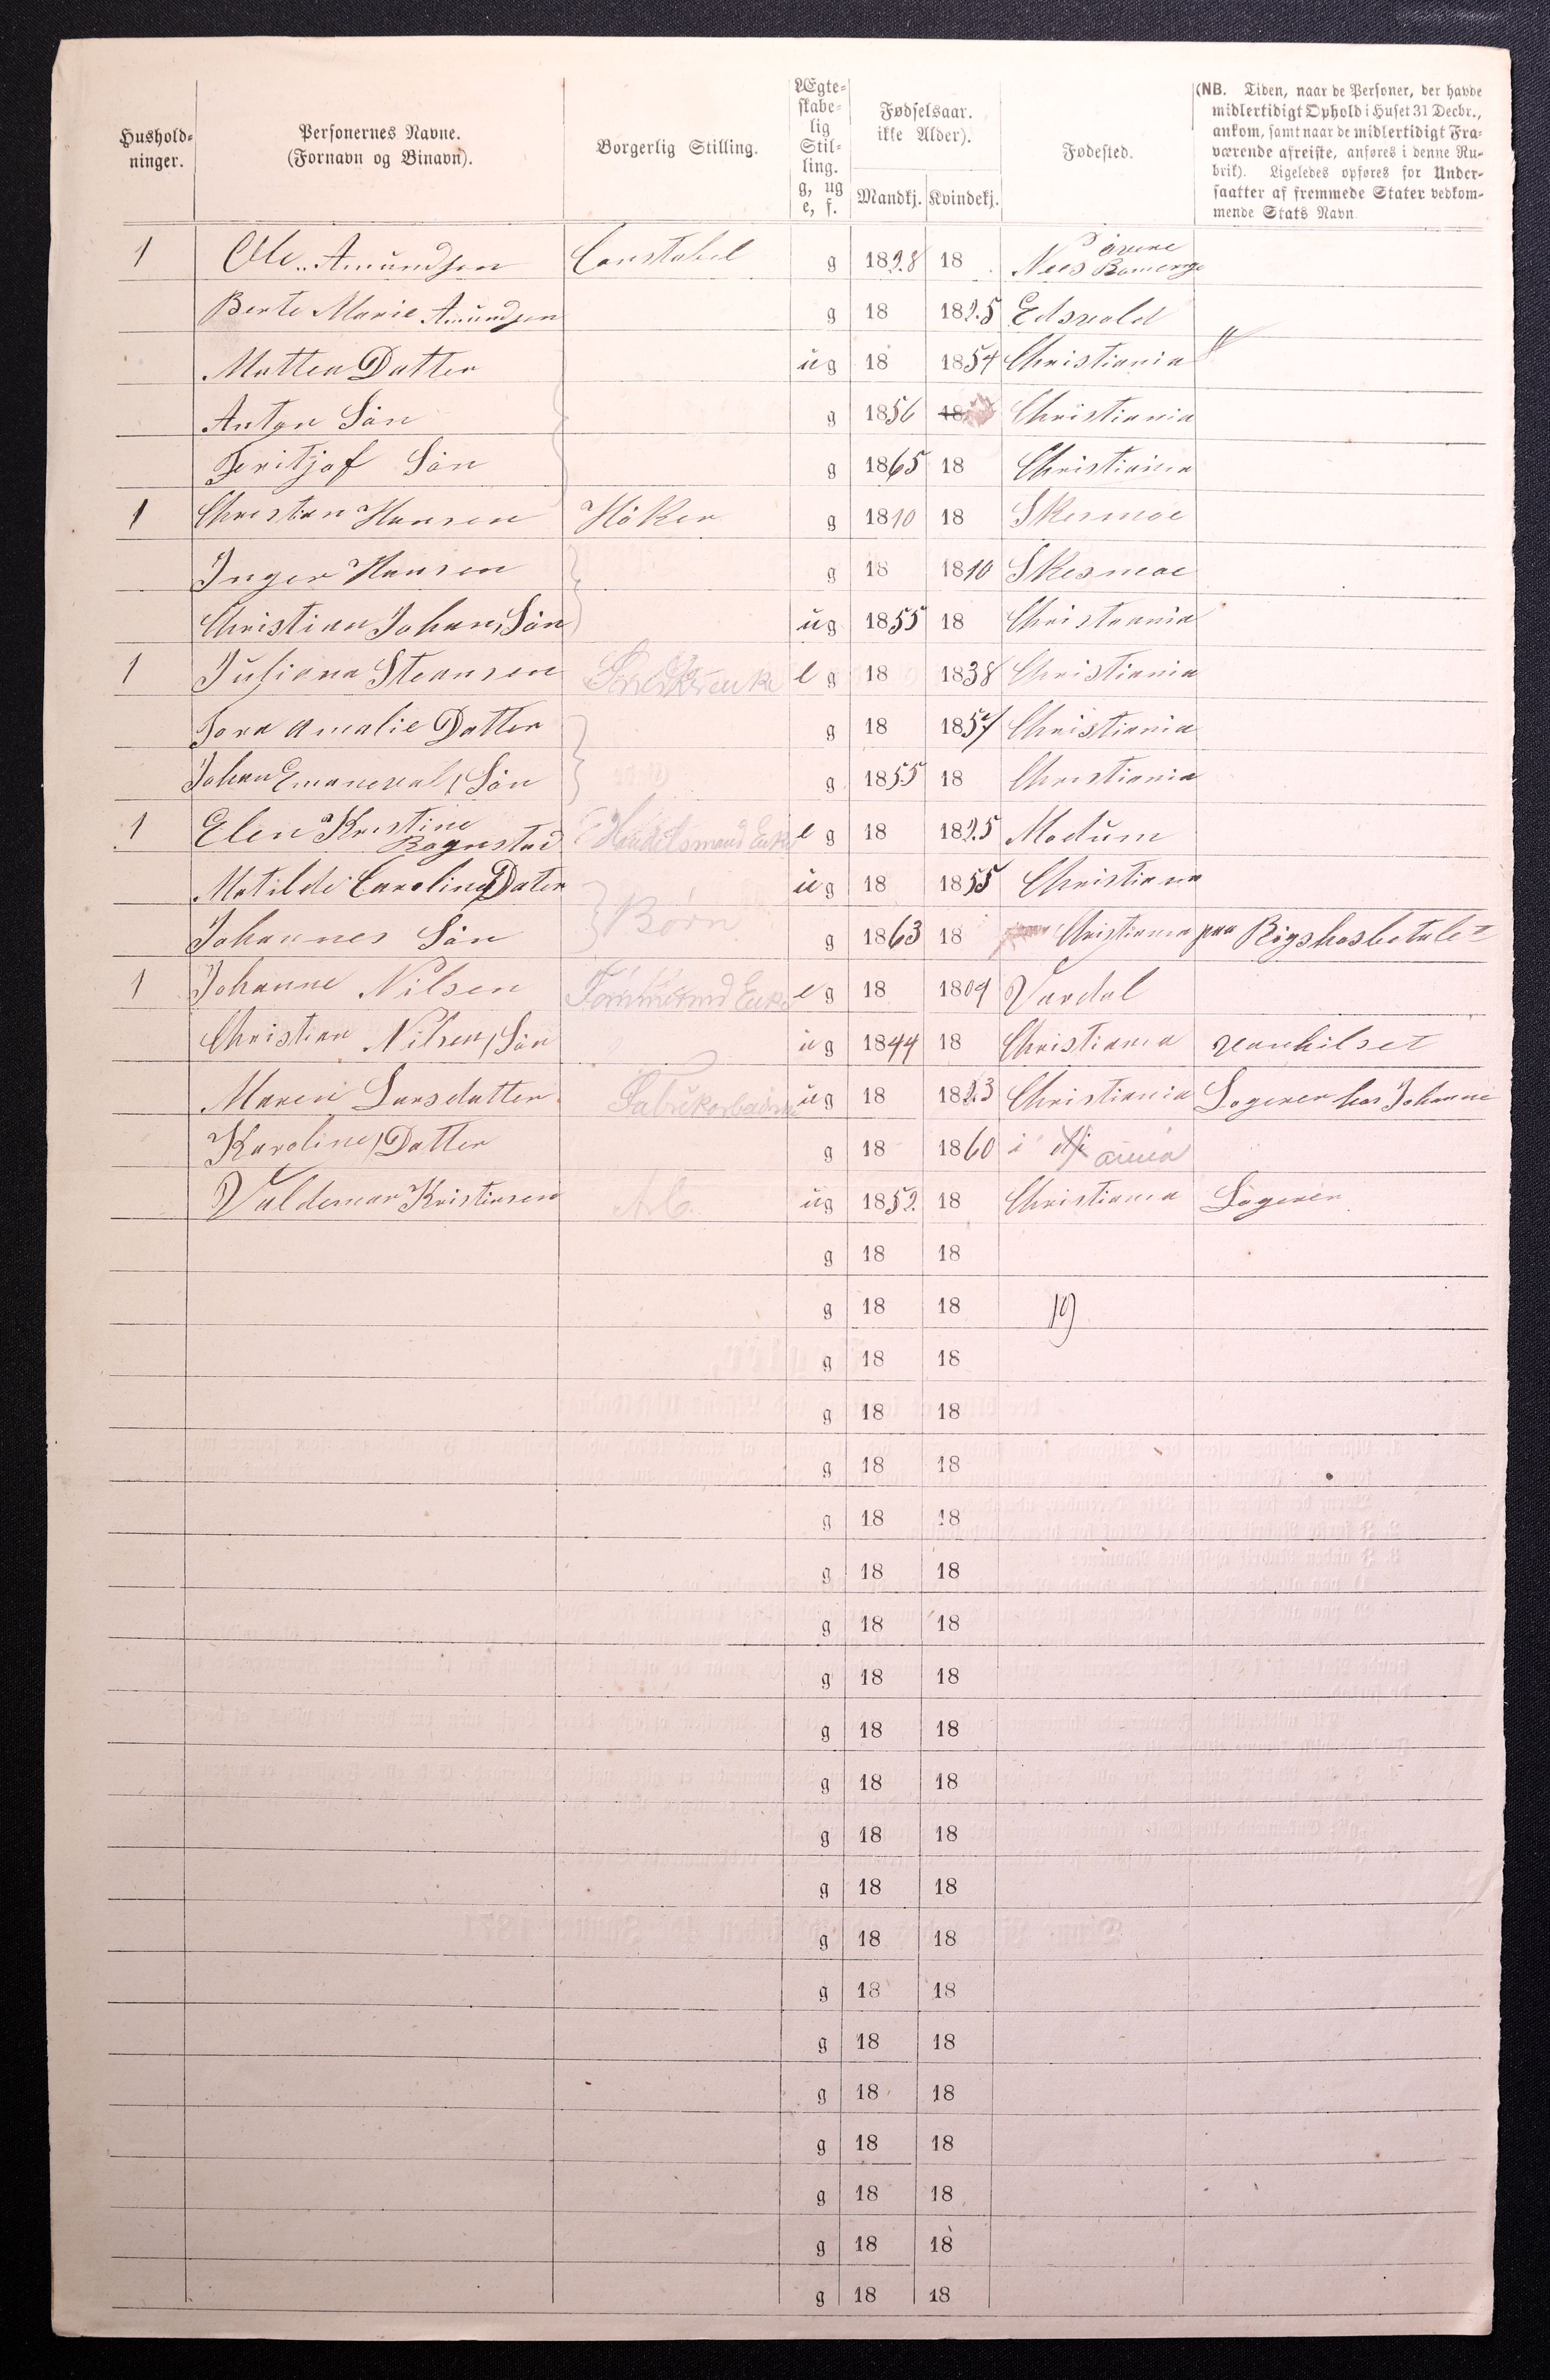 Hushold-
ninger.
Personernes Navne.
(Fornavn og Binavn).
Borgerlig Stilling.
Ægte-
skabe-
lig
Stil-
ling.
g, ug
e, f.
Fødselsaar.
ikke Alder).
Mandkj. Kvindekj.
Fødested.
(NB. Tiden, naar de Personer, der havde
midlertidigt Ophold i Huset 31 Decbr.,
ankom, samt naar de midlertidigt Fra-
værende afreiste, anføres i denne Ru-
brik). Ligeledes opføres for Under-
saatter af fremmede Stater vedkom-
mende Stats Navn.
1 Ole Amundsen Constabel g 1828 18 Nees Romerige
Berte Marie Amundsen g 18 1825 Edsvold
Mattea Datter ug 18 1854 Christiania
Anton Sön g 1856 18 Christiania
Feritjof Sön g 1865 18 Christiania
1 Christian Hansen Höker g 1810 18 Skesmoe
Inger Hansen g 18 1810 Skesmoe
Christian Johan, Sön ug 1855 18 Christiania
1 Juliana Steansen e g 18 1838 Christiania
Tora Amalie Datter g 18 1857 Christiania
Johan Emaneval, Sön g 1855 18 Christiania
1 Elen Kristine
Rognstad Handelsmand Enke e g 18 1825 Modum
Matilde Caroline Dater ug 18 1855 Christiania
Børn
Johannes Sön g 1863 18 Christiania paa Rigshosbetalet
1 Johanne Nilsen Tømmermd Enke e g 18 1809 Vardal
Christian Nilsen, Sön ug 1844 18 Christiania vanhilset
Maren Larsdatter Fabrikarbeiderske ug 18 1823 Christiania Logerer hos Johanne
Karoline, Datter g 18 1860 i Xania
Valdemar Kristiansen Arb. ug 1852 18 Christiania Logerer
g 18 18
g 18 18 19
g 18 18
g 18 18
g 18 18
g 18 18
g 18 18
g 18 18
g 18 18
g 18 18
g 18 18
g 18 18
g 18 18
g 18 18
g 18 18
g 18 18
g 18 18
g 18 18
g 18 18
g 18 18
g 18 18